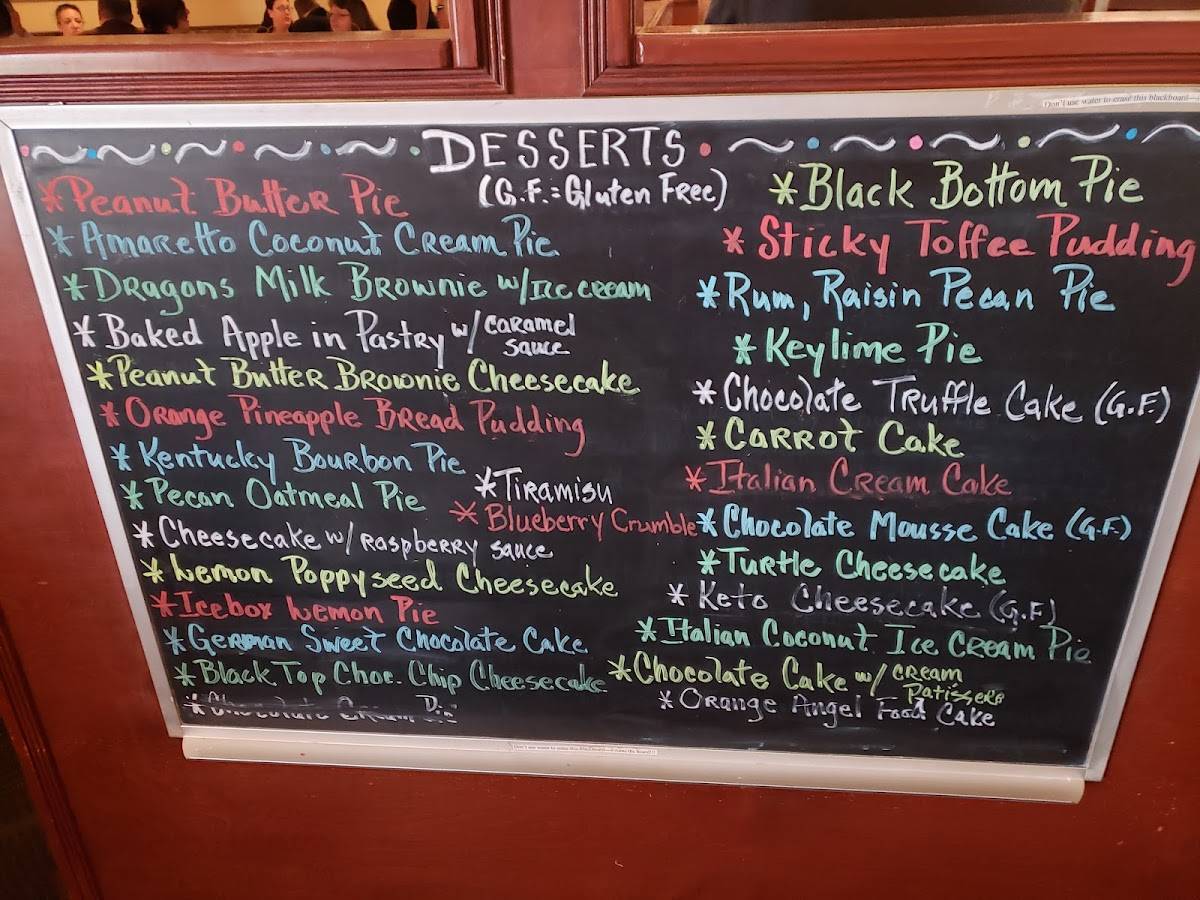 Don't use water to erase this blackboard
DESSERTS
(G.F.=Gluten Free)
*Peanut Butter Pie
*Amaretto Coconut Cream Pie
*Dragons Milk Brownie w/Ice cream
*Baked Apple in Pastry w/ caramel
sauce
*Peanut Butter Brownie Cheesecake
*Orange Pineapple Bread Pudding
*Kentucky Bourbon Pie
*Pecan Oatmeal Pie
*Cheesecake w/ raspberry sauce
*Lemon Poppyseed Cheesecake
*Icebox Lemon Pie
*German Sweet Chocolate Cake
*Black Top Choc. Chip Cheesecake
*Chocolate Cream Pie
*Tiramisu
*Blueberry Crumble
*Black Bottom Pie
*Sticky Toffee Pudding
*Rum, Raisin Pecan Pie
*Keylime Pie
*Chocolate Truffle Cake (G.F.)
*Carrot Cake
*Italian Cream Cake
*Chocolate Mousse Cake (G.F.)
*Turtle Cheesecake
*Keto Cheesecake (G.F)
*Italian Coconut Ice Cream Pie
*Chocolate Cake w/ cream
Patissere
*Orange Angel Food Cake